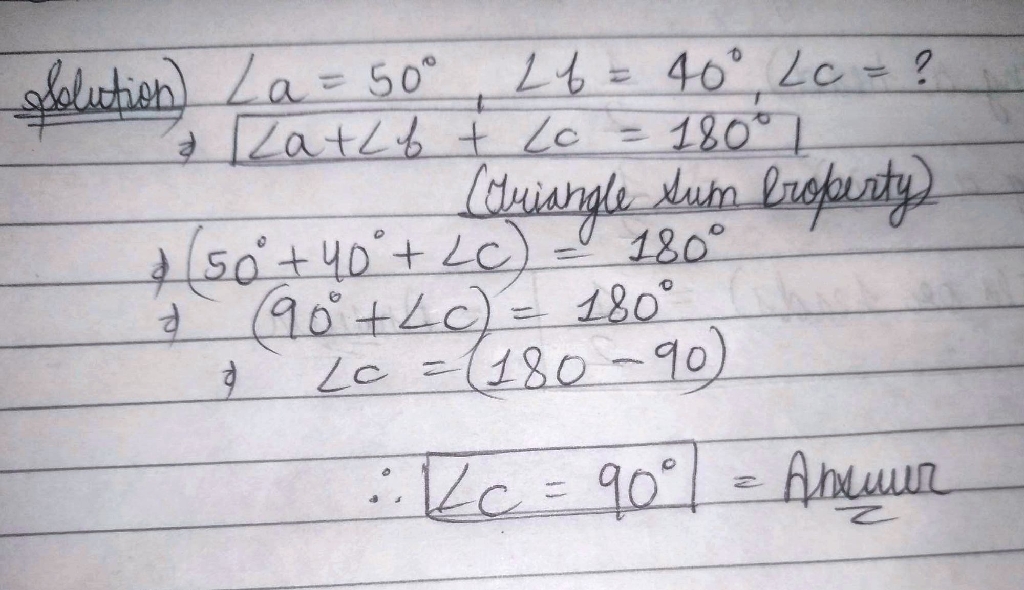 Solution) ∠a = 50°, ∠b = 40°, ∠c = ?
⇒ ∠a+∠b + ∠c = 180°
(Triangle Sum Property)
⇒ (50°+40°+∠c) = 180°
⇒ (90°+∠c) = 180°
⇒ ∠c = (180-90)
∴ ∠c = 90° = Answer